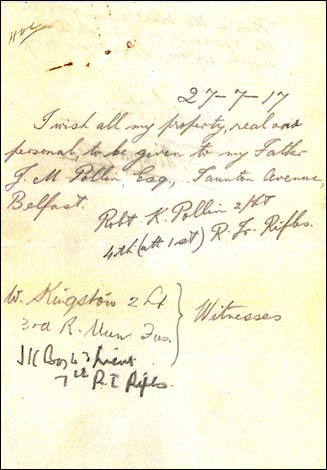 27-7-17
I wish all my property, real and
personal, to be given to my Father
J. M. Pollin, Esq., Taunton Avenue,
Belfast.
Robt K. Pollin 2/Lt
4th (att 1st) R. Ir. Rifls.
W. Kingston 2 Lt
3rd R. Mun Fus.
Witnesses
Lieut
7th R I Rifles